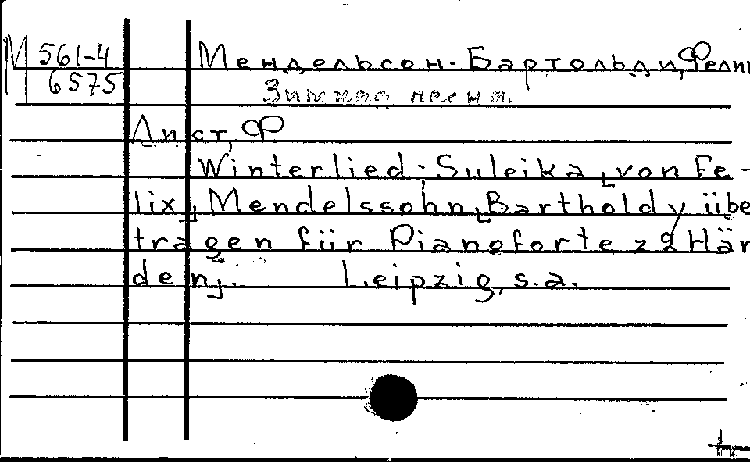 М 561-4 Мендельсон-Бартольди, Фелик
6575
Зимняя песня.
Лист, Ф
Winterlied; Suleika, von Fe-
lix, Mendelssohn, Barthold y übe
tragen für Pianoforte z 2 Hän
den]. Leipzig, s.a.